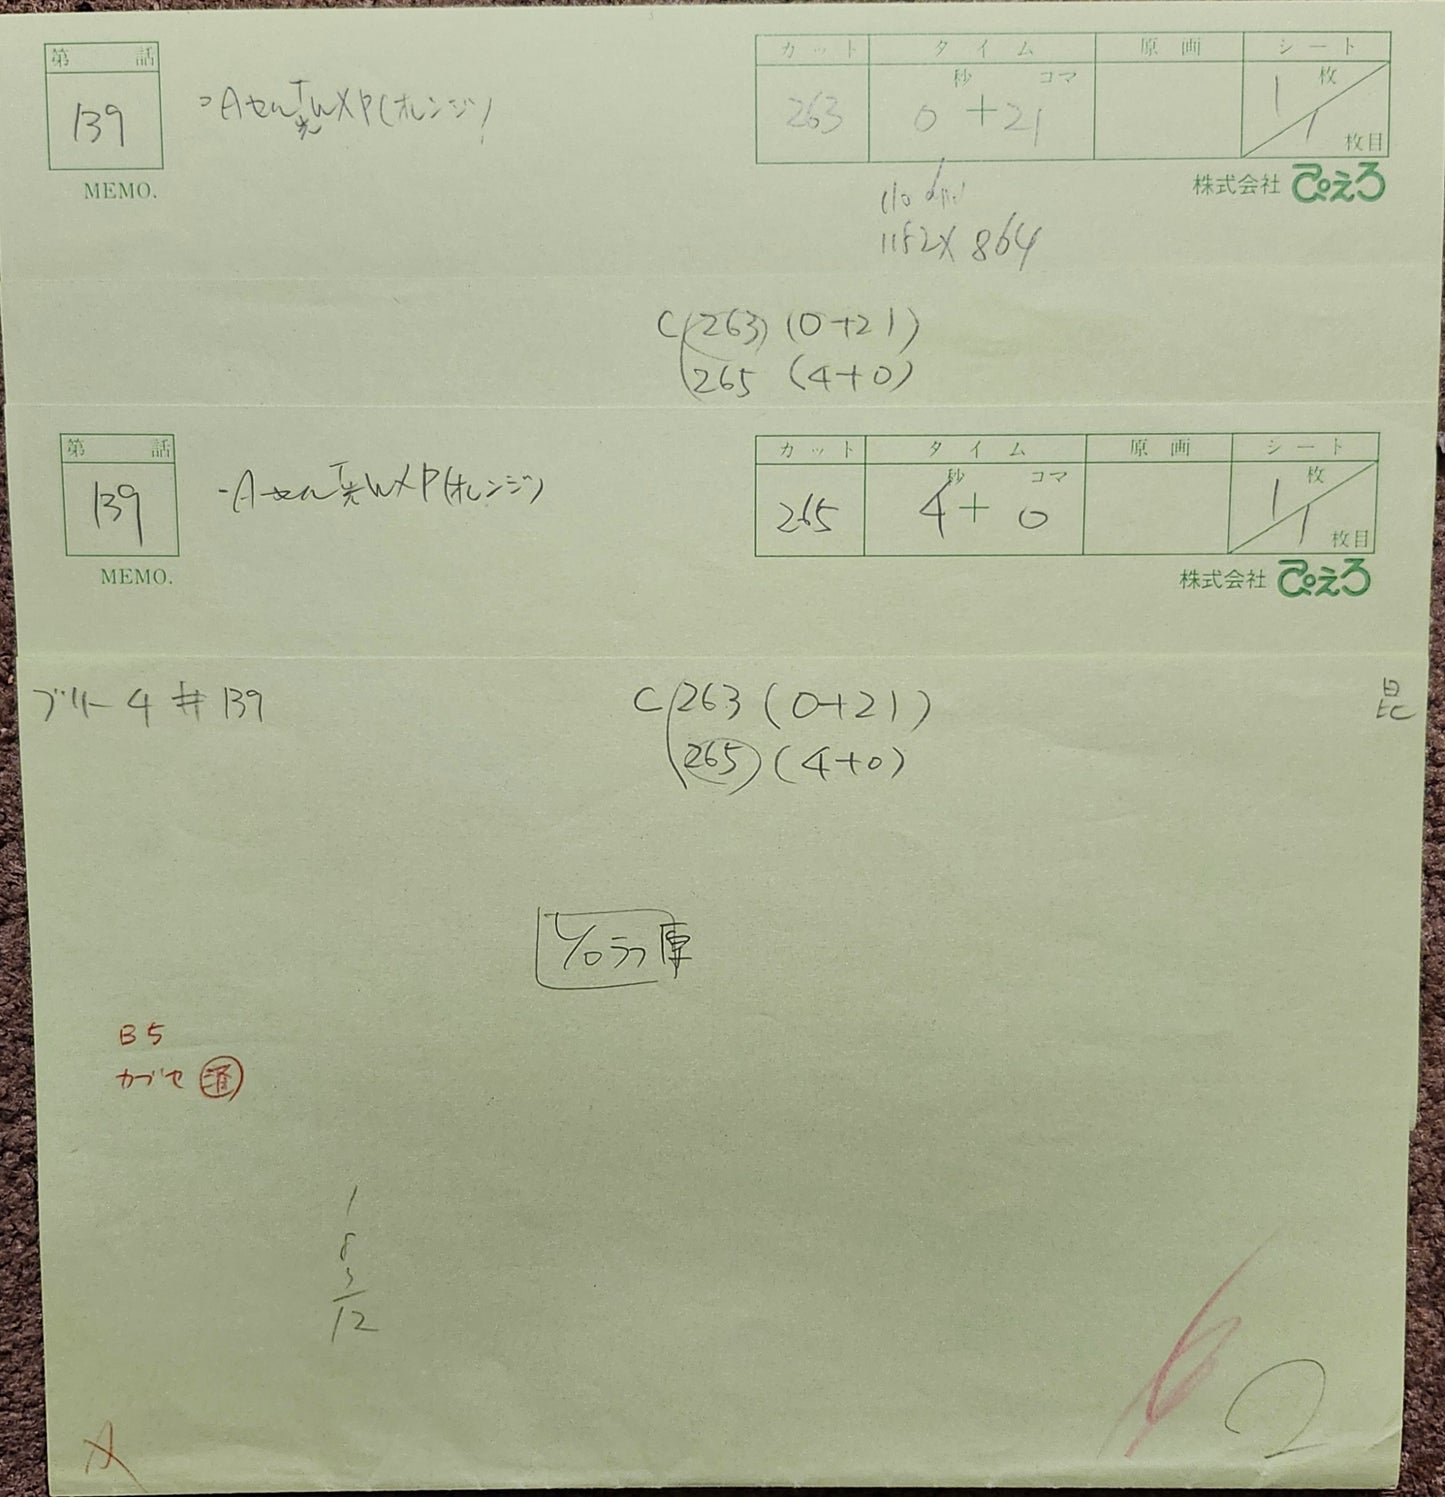 第 話
139
MEMO.
Aセル T光 WXP(オレンジ)
カット タイム 原画 シート
秒 コマ 枚
263 0+21 1/1
枚目
株式会社 ぴえろ
110 dpi
1182×864
C 263 (0+21)
265 (4+0)
第 話
139
MEMO.
Aセル T光 WXP(オレンジ)
カット タイム 原画 シート
秒 コマ 枚
265 4+0 1/1
枚目
株式会社 ぴえろ
ブリーチ #139
C 263 (0+21)
265 (4+0)
昆
B5
カブセ
1
8
3
12
A
6
2